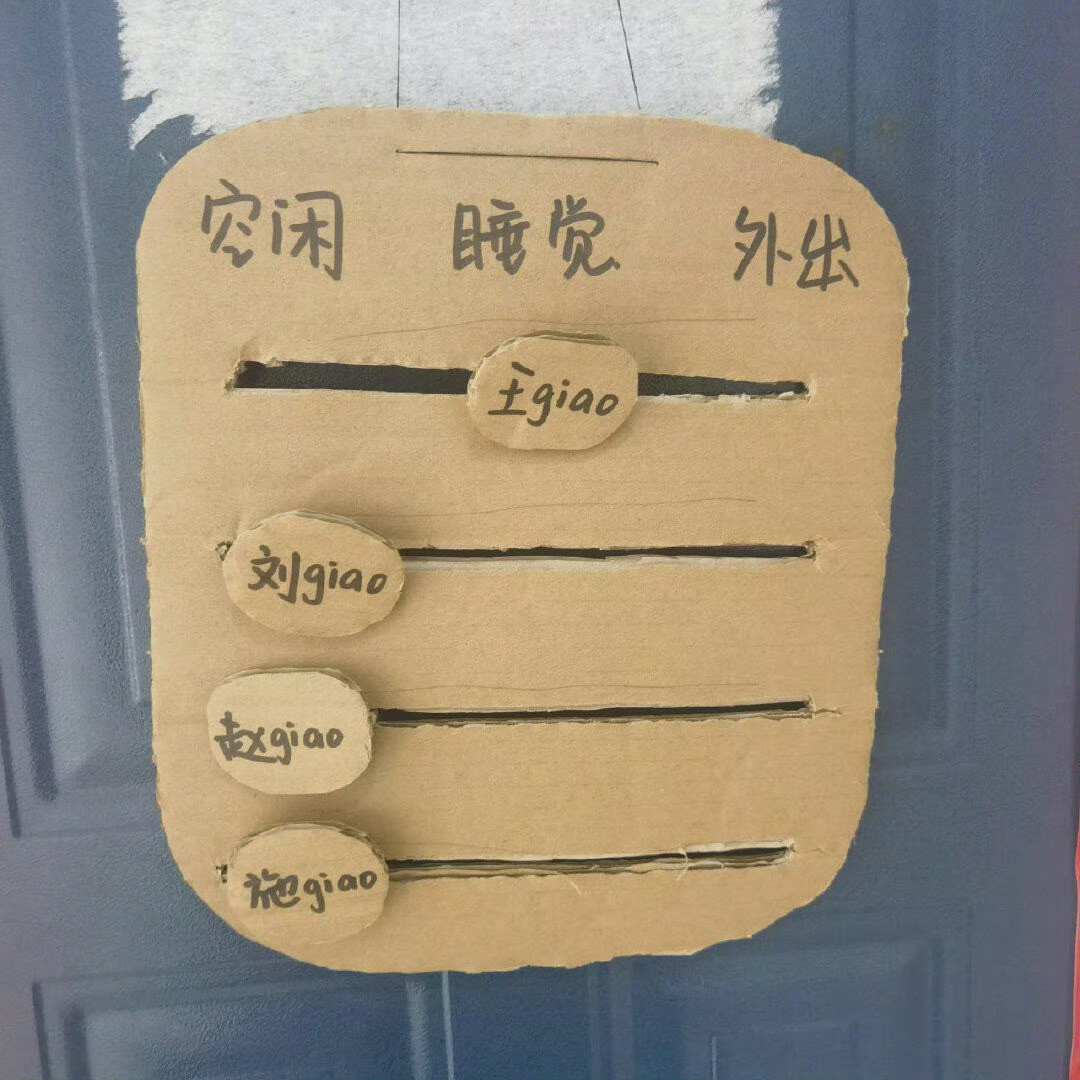 空闲 睡觉 外出
王giao
刘giao
赵giao
施giao